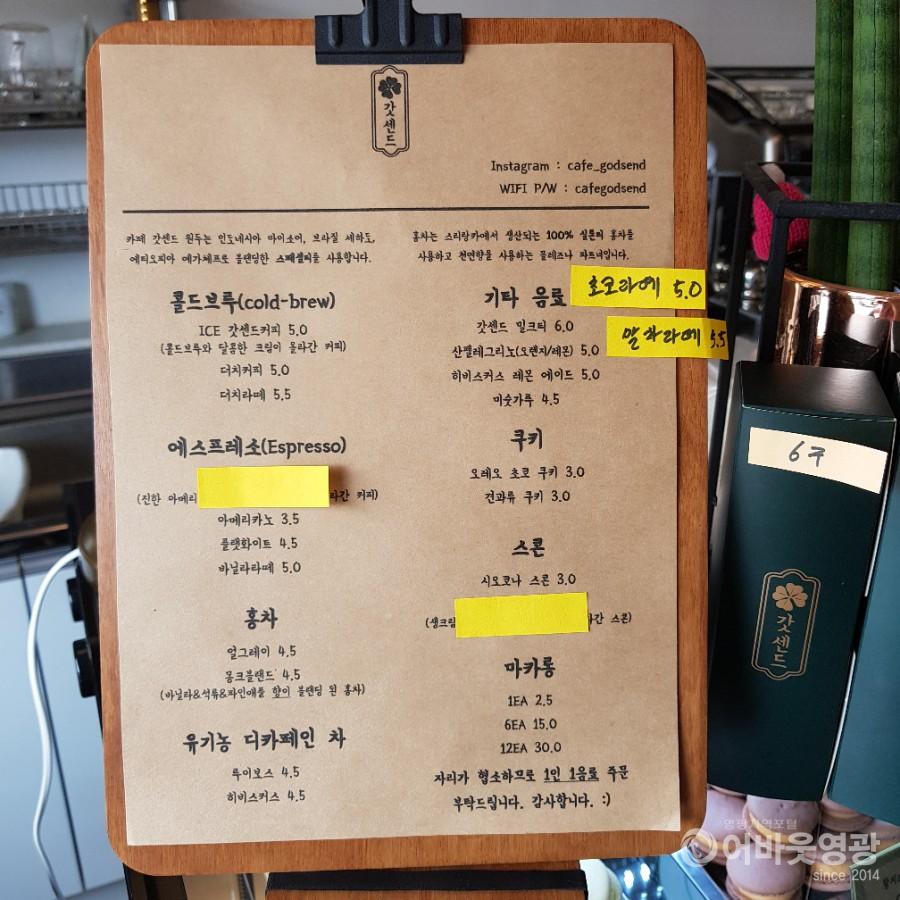 갓센드
Instagram : cafe_godsend
WIFI P/W : cafegodsend
카페 갓센드 원두는 인도네시아 마이소어, 브라질 세하도,
에티오피아 예가체프로 블랜딩한 스페셜티를 사용합니다.
콜드브루(cold-brew)
ICE 갓센드커피 5.0
(콜드브루와 달콤한 크림이 올라간 커피)
더치커피 5.0
더치라떼 5.5
에스프레소(Espresso)
(진한 아메리 라간 커피)
아메리카노 3.5
플랫화이트 4.5
바닐라라떼 5.0
홍차
얼그레이 4.5
몽크블랜드 4.5
(바닐라&석류&파인애플 향이 블랜딩 된 홍차)
유기농 디카페인 차
루이보스 4.5
히비스커스 4.5
홍차는 스리랑카에서 생산되는 100% 실론티 홍차를
사용하고 천연향을 사용하는 믈레즈나 파트너입니다.
기타 음료
초코라떼 5.0
갓센드 밀크티 6.0
말차라떼 5.5
산펠레그리노(오렌지/레몬) 5.0
히비스커스 레몬 에이드 5.0
미숫가루 4.5
쿠키
오레오 초코 쿠키 3.0
견과류 쿠키 3.0
스콘
시오코나 스콘 3.0
(생크림 라간 스콘)
마카롱
1EA 2.5
6EA 15.0
12EA 30.0
자리가 협소하므로 1인 1음료 주문
부탁드립니다. 감사합니다. :)
6구
갓센드
영광지역포털
어바웃영광
since 2014